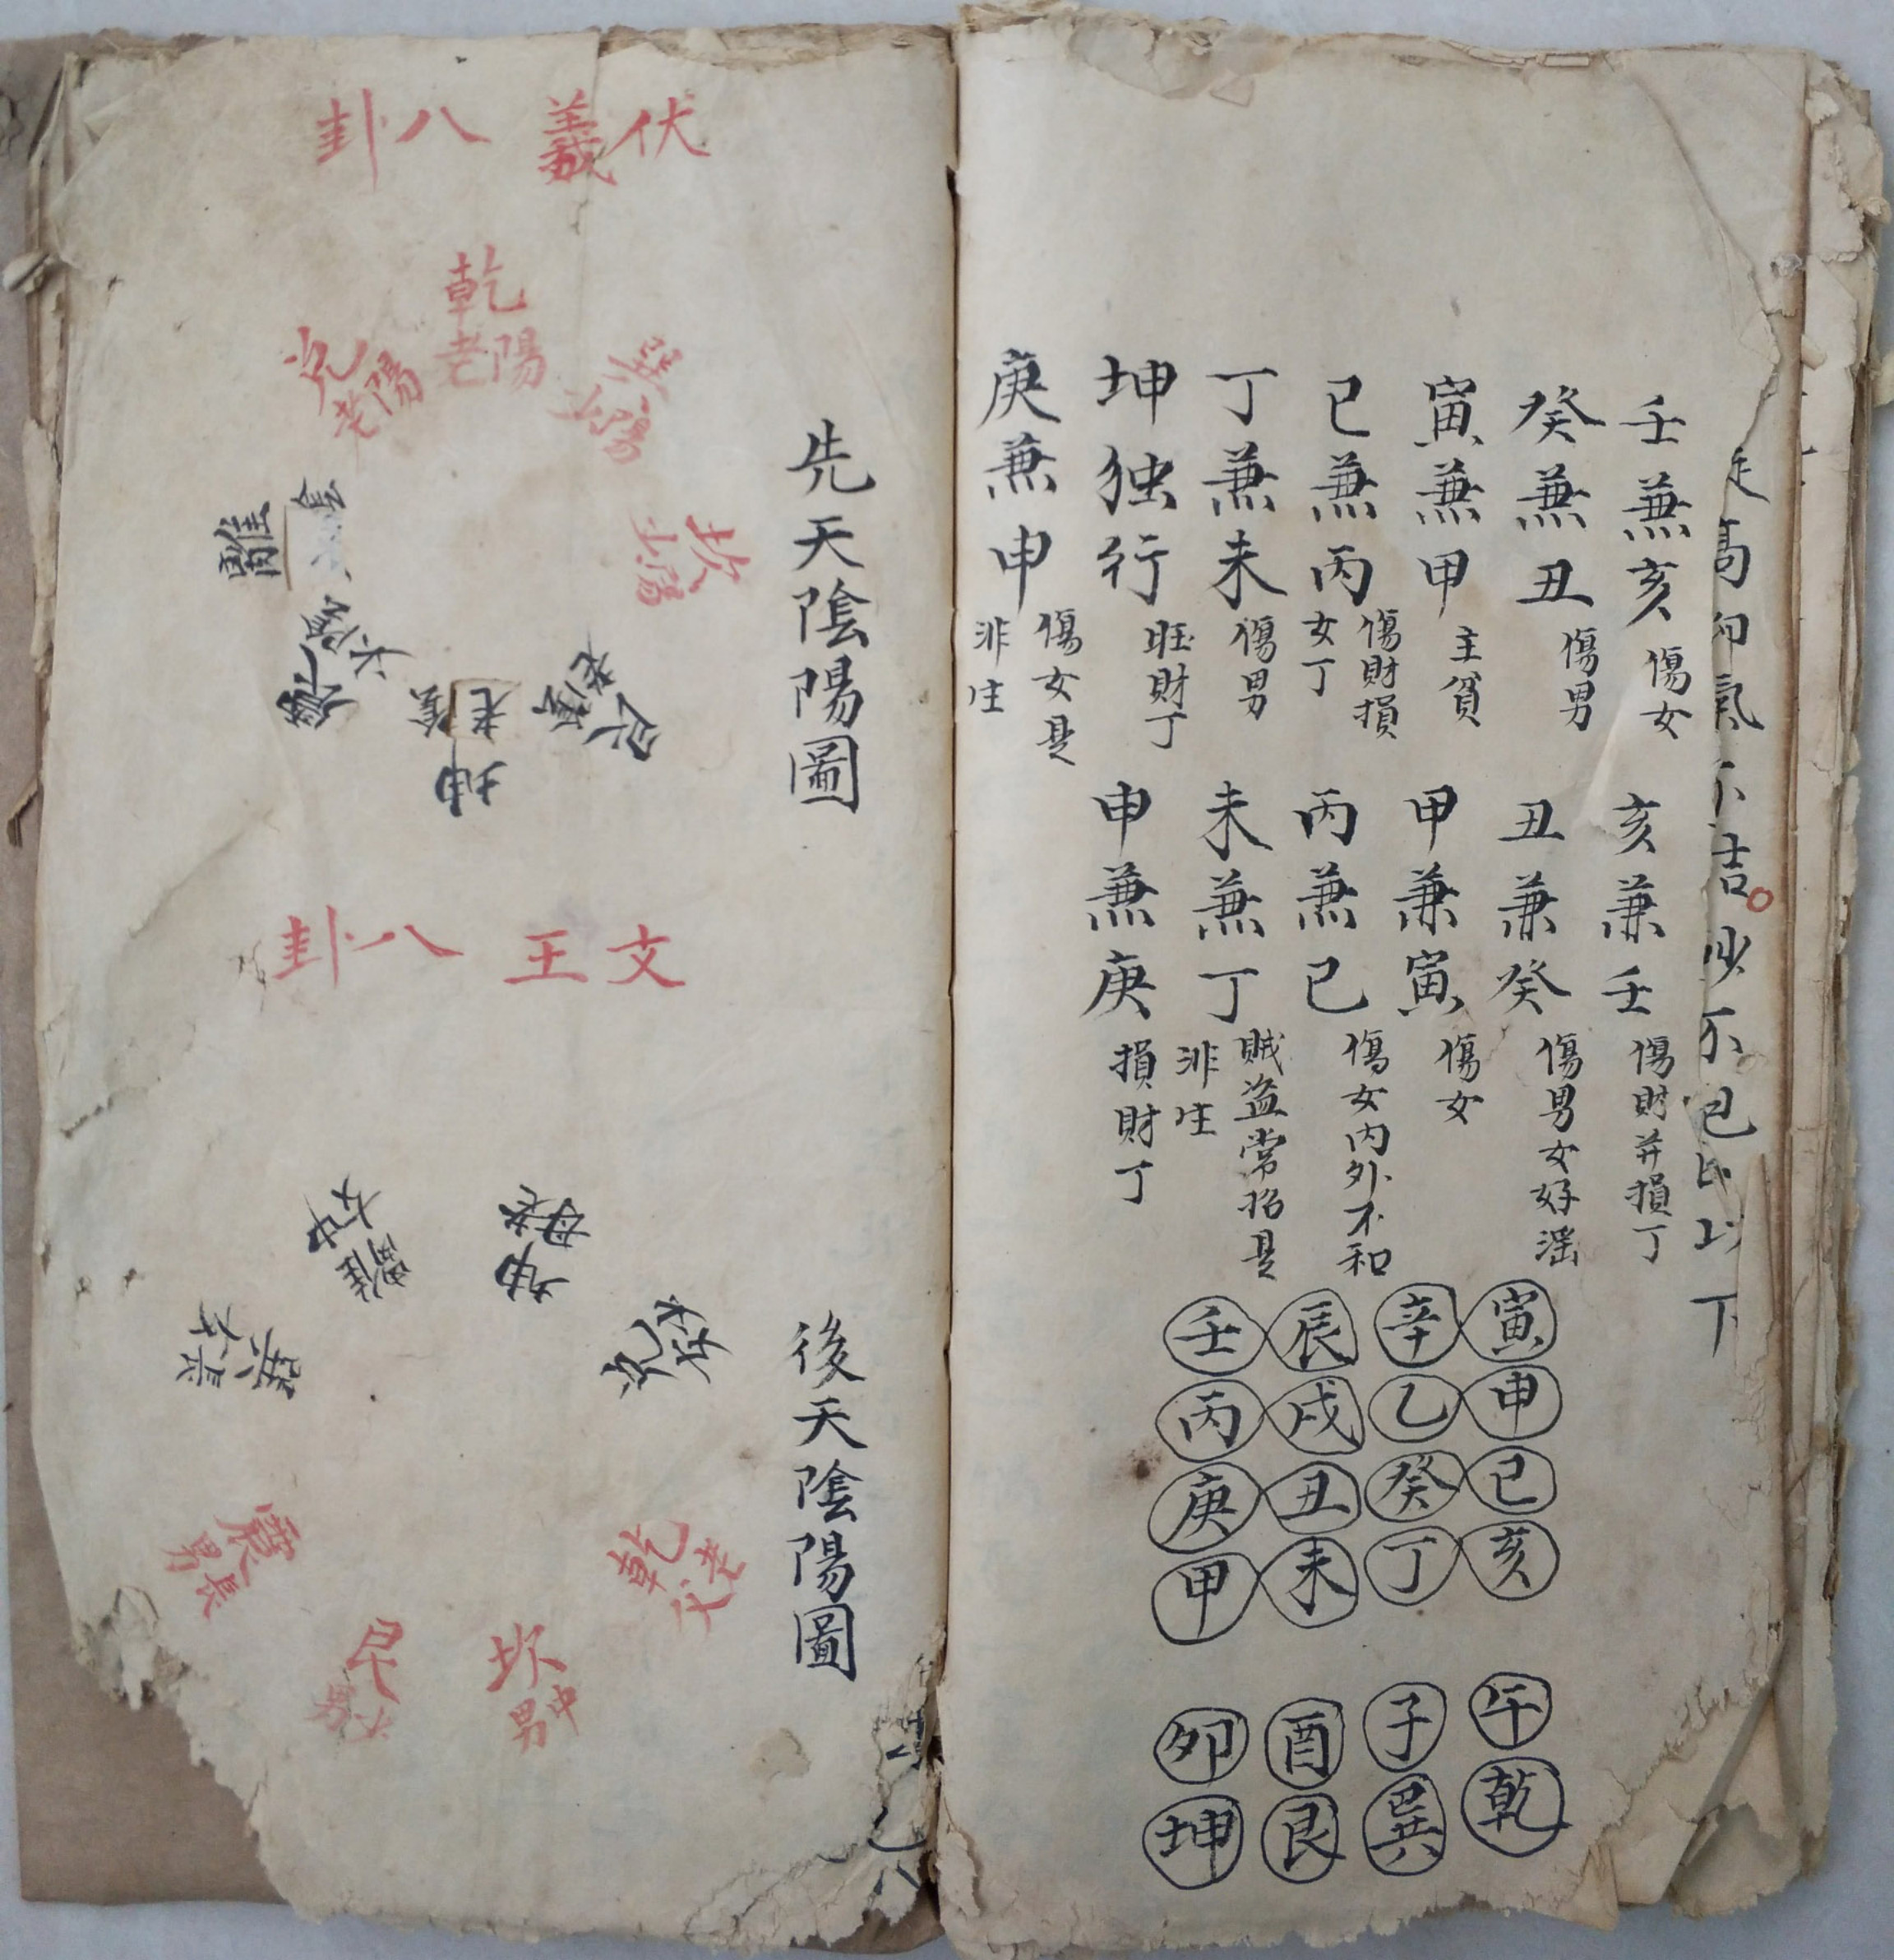 壬兼亥 傷女
癸兼丑 傷男
寅兼甲 主貧
已兼丙 傷財損女丁
丁兼未 傷男
坤独行 旺財丁
庚兼申 傷女是非生
亥兼壬 傷財并損丁
丑兼癸 傷男女好滛
甲兼寅 傷女
丙兼已 傷女内外不和
未兼丁 賊盗常招是非生
申兼庚 損財丁
寅申已亥
辛乙癸丁
辰戌丑未
壬丙庚甲
午乾
子巽
酉艮
卯坤
伏羲八卦
先天陰陽圖
乾
老陽
兌
老陽
巽
少陽
坎
少陽
艮
老陰
坤
老陰
震
少陰
離
少陰
文王八卦
後天陰陽圖
坤
老母
兌
少女
乾
老父
坎
中男
艮
少男
震
長男
巽
長女
離
中女